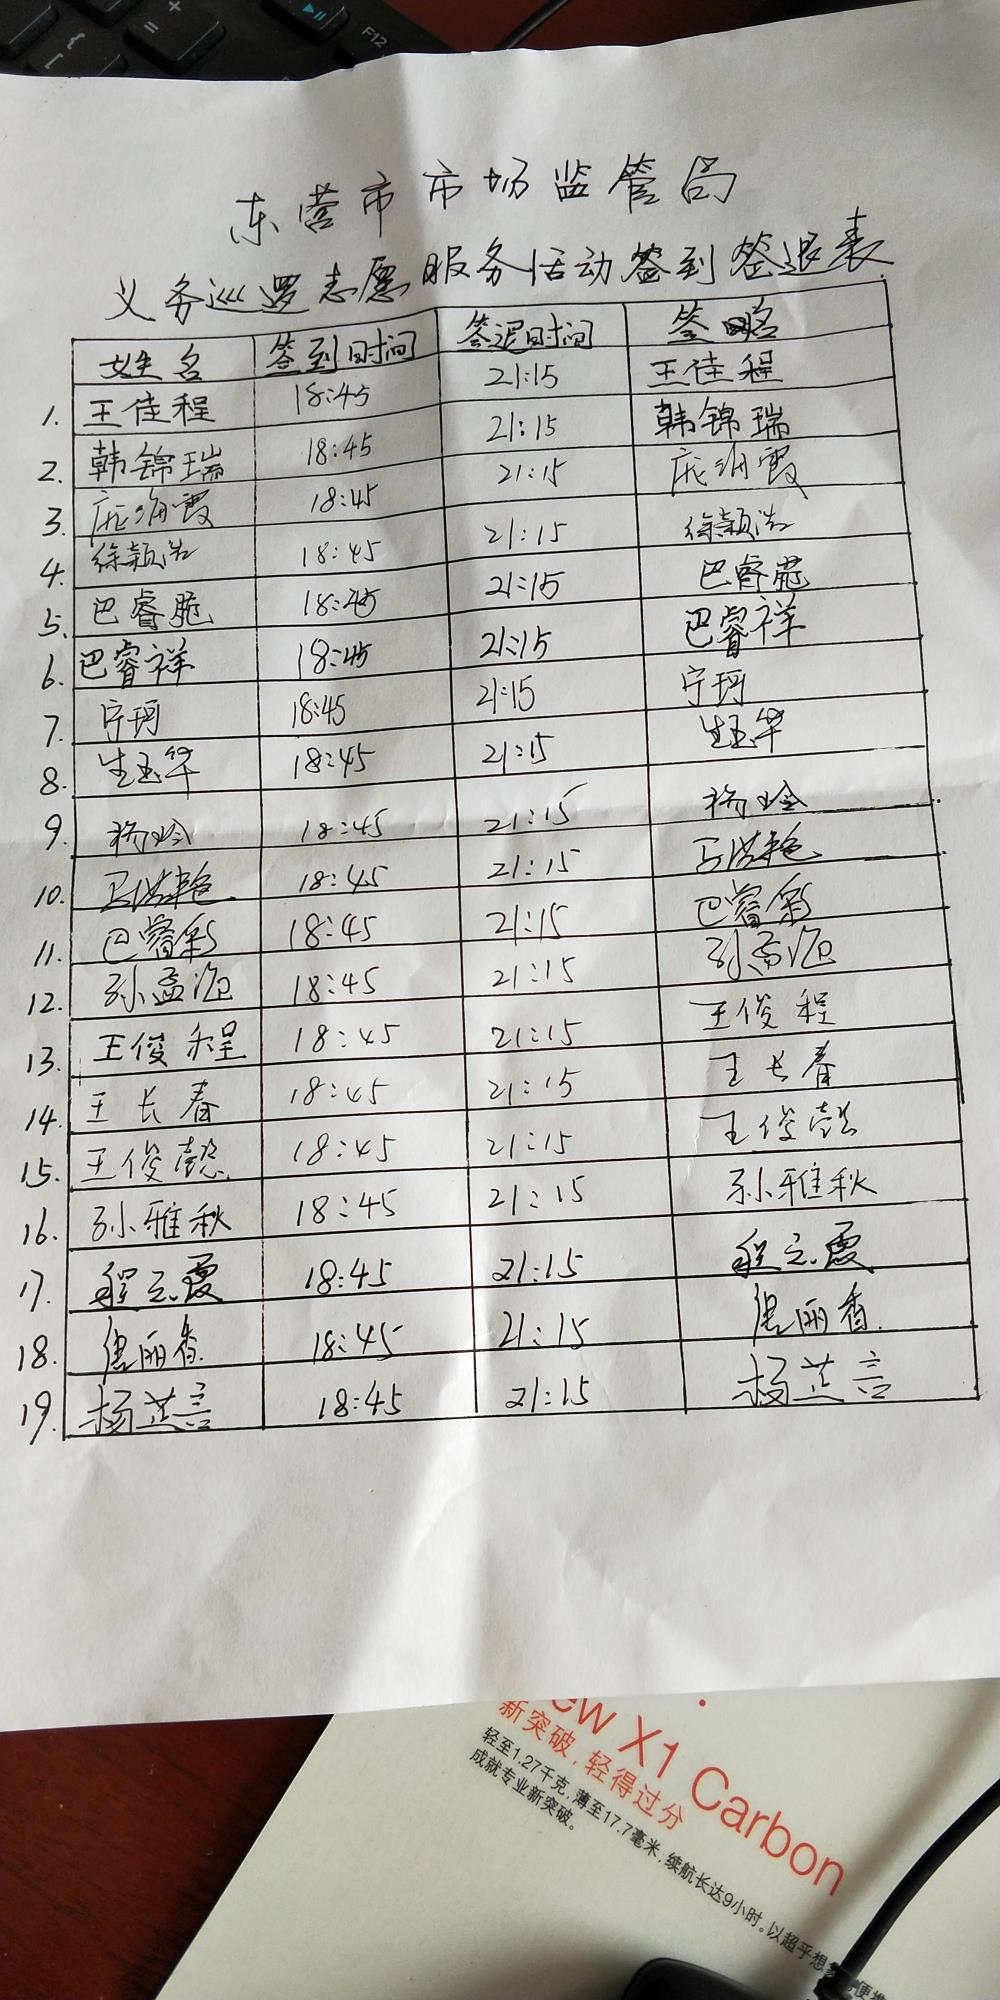 F12
东营市市场监管局
义务巡逻志愿服务活动签到签退表
姓名 签到时间 签退时间 签名
1. 王佳程 18:45 21:15 王佳程
2. 韩锦瑞 18:45 21:15 韩锦瑞
3. 庞海霞 18:45 21:15 庞海霞
4. 徐颖浩 18:45 21:15 徐颖浩
5. 巴睿 18:45 21:15 巴睿
6. 巴睿祥 18:45 21:15 巴睿祥
7. 宁珂 18:45 21:15 宁珂
8. 生玉华 18:45 21:15 生玉华
9. 杨 18:45 21:15 杨
10. 18:45 21:15
11. 巴睿彩 18:45 21:15 巴睿彩
12. 孙孟 18:45 21:15 孙孟
13. 王俊程 18:45 21:15 王俊程
14. 王长春 18:45 21:15 王长春
15. 王俊懿 18:45 21:15 王俊懿
16. 孙雅秋 18:45 21:15 孙雅秋
17. 程立霞 18:45 21:15 程立霞
18. 丽香 18:45 21:15 丽香
19. 杨芷言 18:45 21:15 杨芷言
ew X1 Carbon
新突破,轻得过分
轻至1.27千克,薄至17.7毫米,续航长达9小时。以超乎想
成就专业新突破。